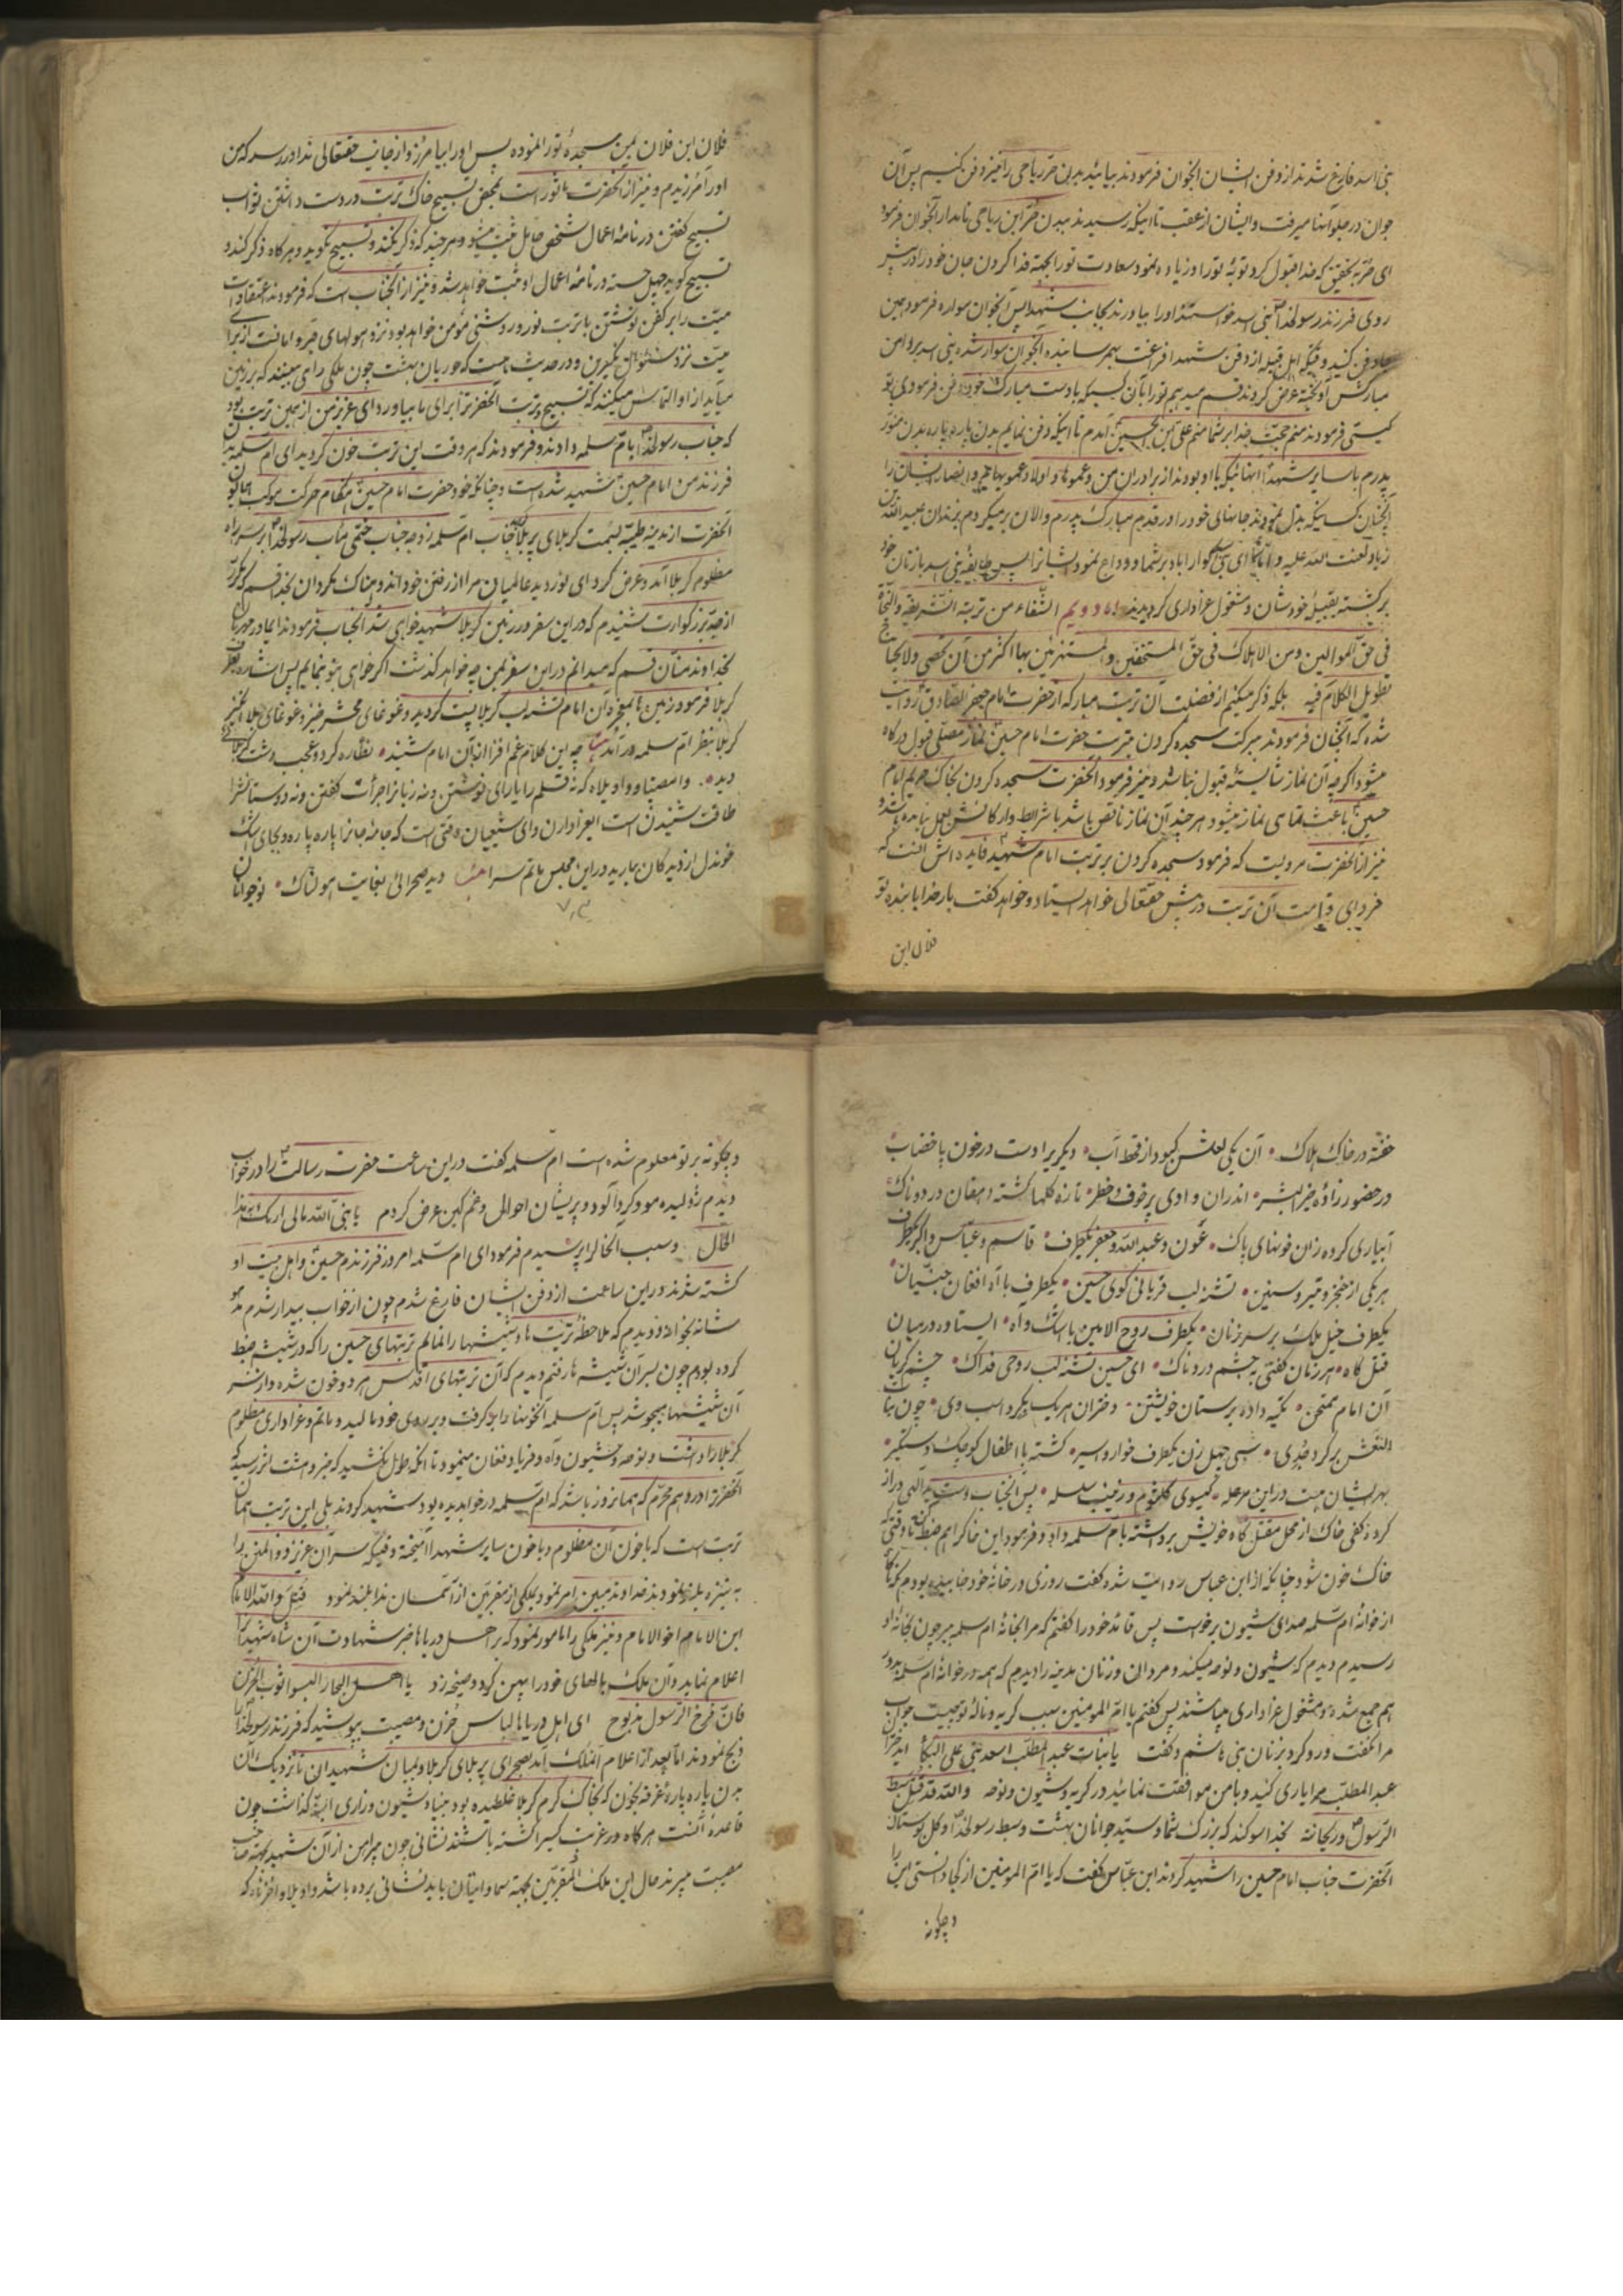 بنی اسد فارغ شدند از دفن ایشان آنجوان فرمودند بیائید بدن حر ریاحی را نیز دفن کنیم پس آن
جوان در جلو آنها میرفت و ایشان از عقب تا اینکه رسیدند ببدن حر ابن ریاحی نامدار آنجوان فرمود
ای حر بتحقیق که خدا قبول کرد توبهٔ تو را و زیاده نمود سعادت تو را بجهة فدا کردن جان خود را در پیش
روی فرزند رسولخدا بنی اسد خواستند او را بیاورند بجانب شهدا پس آنجوان سواره فرمود همین
جا دفن کنید وقتیکه اهل قبیله از دفن شهدا فراغت بهم رسانیدند آنجوان سوار شده بنی اسد بر دامن
مبارکش آویخته عرض کردند قسم میدهیم تو را بآن کسیکه با دست مبارک خود دفن فرمودی تو
کیستی فرمودند منم حجت خدا بر شما منم علی ابن الحسین آمدم تا اینکه دفن نمایم بدن پاره پاره بدن منور
پدرم با سایر شهدا آنهائیکه با او بودند از برادران من و عموها و اولاد عموهایم و انصار ایشان را
آنچنان کسانیکه بذل نمودند جانهای خود را در قدم مبارک پدرم و الان بر میگردم بزندان عبیدالله بن
زیاد لعنت الله علیه و اما شما ای بنی اسد گوارا باد بر شما و وداع نمود ایشانرا پس طایفهٔ بنی اسد با زنان خود
برگشته بقبیلهٔ خودشان و مشغول عزاداری گردیدند اما دویم الشفاء من تربته الشریفة و النجاة
فی حق الموالین و من الاهلاک فی حق المستخفین و المستهزئین بها اکثر من ان تحصی و لا یحتاج
تطویل الکلام فیه بلکه ذکر میکنیم از فضیلت آن تربت مبارکه از حضرت امام جعفر الصادق روایت
شده که آنجناب فرمودند ببرکت سجده کردن بتربت حضرت امام حسین نماز مصلی قبول درگاه
میشود اگرچه آن نماز شایستهٔ قبول نباشد و نیز فرمود آنحضرت سجده کردن بخاک حریم امام
حسین باعث تمامی نماز میشود هرچند آن نماز ناقص باشد با شرایط و ارکانش بعمل نیامده باشد و
نیز از آنحضرت مرویست که فرمود سجده کردن بر تربت امام شهید فایده اش آنست که
فردای قیامت آن تربت در پیش حقتعالی خواهد ایستاد و خواهد گفت بار خدایا بندهٔ تو
فلان ابن
فلان ابن فلان بمن سجدهٔ تو را نموده پس او را بیامرز و از جانب حقتعالی ندا در رسد که من
او را آمرزیدم و نیز از آنحضرت ماثور است بمحض تسبیح خاک تربت در دست داشتن ثواب
تسبیح گفتن در نامهٔ اعمال شخص حامل ثبت میشود هرچند که ذکر نکند و تسبیح نگوید و هرگاه ذکر کند و
تسبیح گوید چهل حسنه در نامهٔ اعمال او ثبت خواهد شد و نیز از آنجناب است که فرمودند اعتقادات
میت را بر کفن نوشتن با تربت نور و روشنی مؤمن خواهد بود نزد هولهای قبر و امانت از برای
میت نزد سئوال نکیرین و در حدیث است که حوریان بهشت چون ملکی را می بینند که بزمین
میآید از او التماس میکنند که تسبیح و تربت آنحضرت را برای ما بیاور ای عزیز من از همین تربت بود
که جناب رسولخدا بام سلمه دادند و فرمودند که هر وقت این تربت خون گردید ای ام سلمه بدان
فرزند من امام حسین شهید شده است و چنانکه خود حضرت امام حسین هنگام حرکت موکب همایون
آنحضرت از مدینه طیبه بسمت کربلای پر بلا جناب ام سلمه زوجه جناب ختمی مآب رسولخدا بر سر راه
مظلوم کربلا آمد و عرض کرد ای نور دیده عالمیان مرا از رفتن خود اندوهناک مکردان بخدا قسم که مکرر
از جد بزرگوارت شنیدم که در این سفر در زمین کربلا شهید خواهی شد آنجناب فرمودند ای مادر مهربان
بخداوند منان قسم که میدانم در این سفر بمن چه خواهد گذشت اگر خواهی بتو بنمایم پس اشاره بطرف
کربلا فرمود زمین ها بمعجزهٔ آن امام تشنه لب کربلا پست گردید و غوغای محشر خیز و غوغای بلا انگیز
کربلا بنظر ام سلمه در آمد چه این کلام غم افزا از آن امام شنید نظاره کرد و عجب دشت کربلائی
دید وا مصیبتا و واویلاه که نه قلم را یارای نوشتن و نه زبانرا جرأت گفتن و نه دوستانرا
طاقت شنیدن است ایعزاداران و ای شیعیان وقتی است که جامهٔ جانرا پاره پاره و بجای اشک
خون دل از دیدگان ببارید در این مجلس ماتم سرا دید صحرائی بغایت هولناک نوجوانان
خفته در خاک هلاک آن یکی لعلش کبود از قحط آب دیگری را دست در خون با خضاب
در حضور زادهٔ خیر البشر اندران وادی پر خوف و خطر تازه گلها کشته دهقان دردناک
آبیاری کرده زان خونهای پاک عون و عبدالله و جعفر یکطرف قاسم و عباس و اکبر یکطرف
هر یکی از خنجر و تیر و سنین تشنه لب قربانی کوی حسین یکطرف با آه افغان جنیان
یکطرف خیل ملک بر سر زنان یکطرف روح الامین با اشک و آه ایستاده در میان
قتل گاه هر زمان گفتی به چشم دردناک ای حسین تشنه لب روحی فداک چشم گریان
آن امام ممتحن تکیه داده برستان خویشتن دختران هر یک بگرد اسب وی چون بنات
النعش بر گرد جدی سی چهل زن یکطرف خوار و اسیر گشته با اطفال کوچک دستگیر
بهر ایشان هست در این مرحله گیسوی کلثوم و زینب سلسله پس آنجناب دست ید اللهی دراز
کرد و کفی خاک از محل مقتل گاه خویش برداشته بام سلمه داد و فرمود این خاک را هم ضبط کن تا وقتی که
خاک خون شود چنانکه از ابن عباس روایت شده گفت روزی در خانهٔ خود خوابیده بودم که ناگاه
از خانهٔ ام سلمه صدای شیون برخواست پس قائد خود را گفتم که مرا بخانهٔ ام سلمه ببر چون بخانهٔ او
رسیدم دیدم که شیون و نوحه میکند و مردان و زنان مدینه را دیدم که همه در خوانهٔ ام سلمه بدور
هم جمع شده و مشغول عزاداری میباشند پس گفتم یا ام المومنین سبب گریه و نالهٔ تو چیست جواب
مرا نگفت و رو کرد بزنان بنی هاشم و گفت یا بنات عبد المطلب اسعدننی علی البکاء ای دختران
عبد المطلب مرا یاری کنید و با من موافقت نمائید در گریه و شیون و نوحه والله قد قتل سبط
الرسول و ریحانته بخدا سوگند که بزرگ شما و سید جوانان بهشت و سبط رسولخدا و گل بوستان
آنحضرت جناب امام حسین را شهید کردند ابن عباس گفت که یا ام المومنین از کجا دانستی این را
و چگونه
و چگونه بر تو معلوم شده است ام سلمه گفت در این ساعت حضرت رسالت را در خواب
دیدم ژولیده مو و گرد آلود و پریشان احوال و غم گین عرض کردم یا نبی الله مالی اراک بهذا
الحال و سبب آنحال را پرسیدم فرمود ای ام سلمه امروز فرزندم حسین و اهل بیت او
کشته شدند و در این ساعت از دفن ایشان فارغ شدم چون از خواب بیدار شدم
شانه بخوانه دویدم که ملاحظهٔ تربت ها و شیشها را نمایم تربتهای حسین را که در شیشه ضبط
کرده بودم چون بسر آن شیشه ها رفتم دیدم که آن تربتهای اقدس هر دو خون شده و از سر
آن شیشها میجوشد پس ام سلمه آنخونها را بر گرفت و بر روی خود مالید و ماتم و عزاداری مظلوم
کربلا را داشت و نوحه و شیون و آه و فریاد و فغان مینمود تا آنکه طول نکشید که خبر وحشت اثر رسید که
آنحضرت را در دهم محرم که همانروز باشد که ام سلمه در خواب دیده بود شهید کردند بلی این تربت همان
تربت است که با خون آن مظلوم و با خون سایر شهدا آمیخته وقتیکه سر آن عزیز ذوالمنن را
به نیزه بلند نمودند خداوند مبین امر نمود بملکی از مقربین از آسمان ندا بلند نمود قتل والله الامام
ابن الامام اخو الامام و نیز ملکی را مامور نمود که بر اهل دریاها خبر شهادت آن شاه شهدا را
اعلام نماید و آن ملک بالهای خود را پهن کرد و صیحه زد یا اهل البحار البسوا ثوب الحزن
فان فرخ الرسول مذبوح ای اهل دریاها لباس حزن و مصیبت بپوشید که فرزند رسولخدا را
ذبح نمودند اما بعد از اعلام آنملک آمد بصحرای پر بلای کربلا و بمیان شهیدان تا نزدیک آن
بدن پاره پارهٔ غرقه بخون که بخاک گرم کربلا غلطیده بود بنیاد شیون و زاری گذاشت چون
قاعده آنست هرگاه در غربت کسیرا کشته باشند نشانی چون پیراهن از آن شهید بجهة صاحب
مصیبت میبرند حال این ملک المقربین بجهة سماواتیان باید نشانی برده باشد واویلا واحزناه که